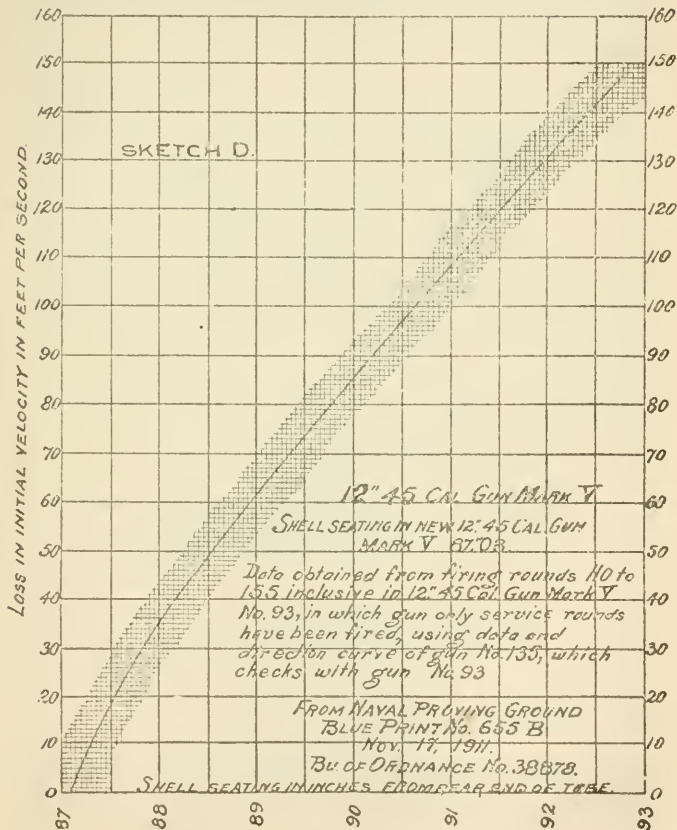 SKETCH D.
LOSS IN INITIAL VELOCITY IN FEET PER SECOND.
160
150
140
130
120
110
100
90
80
70
60
50
40
30
20
10
0
160
150
140
130
120
110
100
90
80
70
60
50
40
30
20
10
0
12" 45 CAL GUN MARK V
SHELL SEATING IN NEW 12" 45 CAL GUN
MARK V 87.03
Data obtained from firing rounds 110 to
155 inclusive in 12" 45 Cal. Gun Mark V
No. 93, in which gun only service rounds
have been fired, using data and
direction curve of gun No. 135, which
checks with gun No. 93
FROM NAVAL PROVING GROUND
BLUE PRINT No. 655 B
Nov. 17, 1911.
BU OF ORDNANCE No. 38878.
SHELL SEATING IN INCHES FROM REAR END OF TUBE.
87
88
89
90
91
92
93